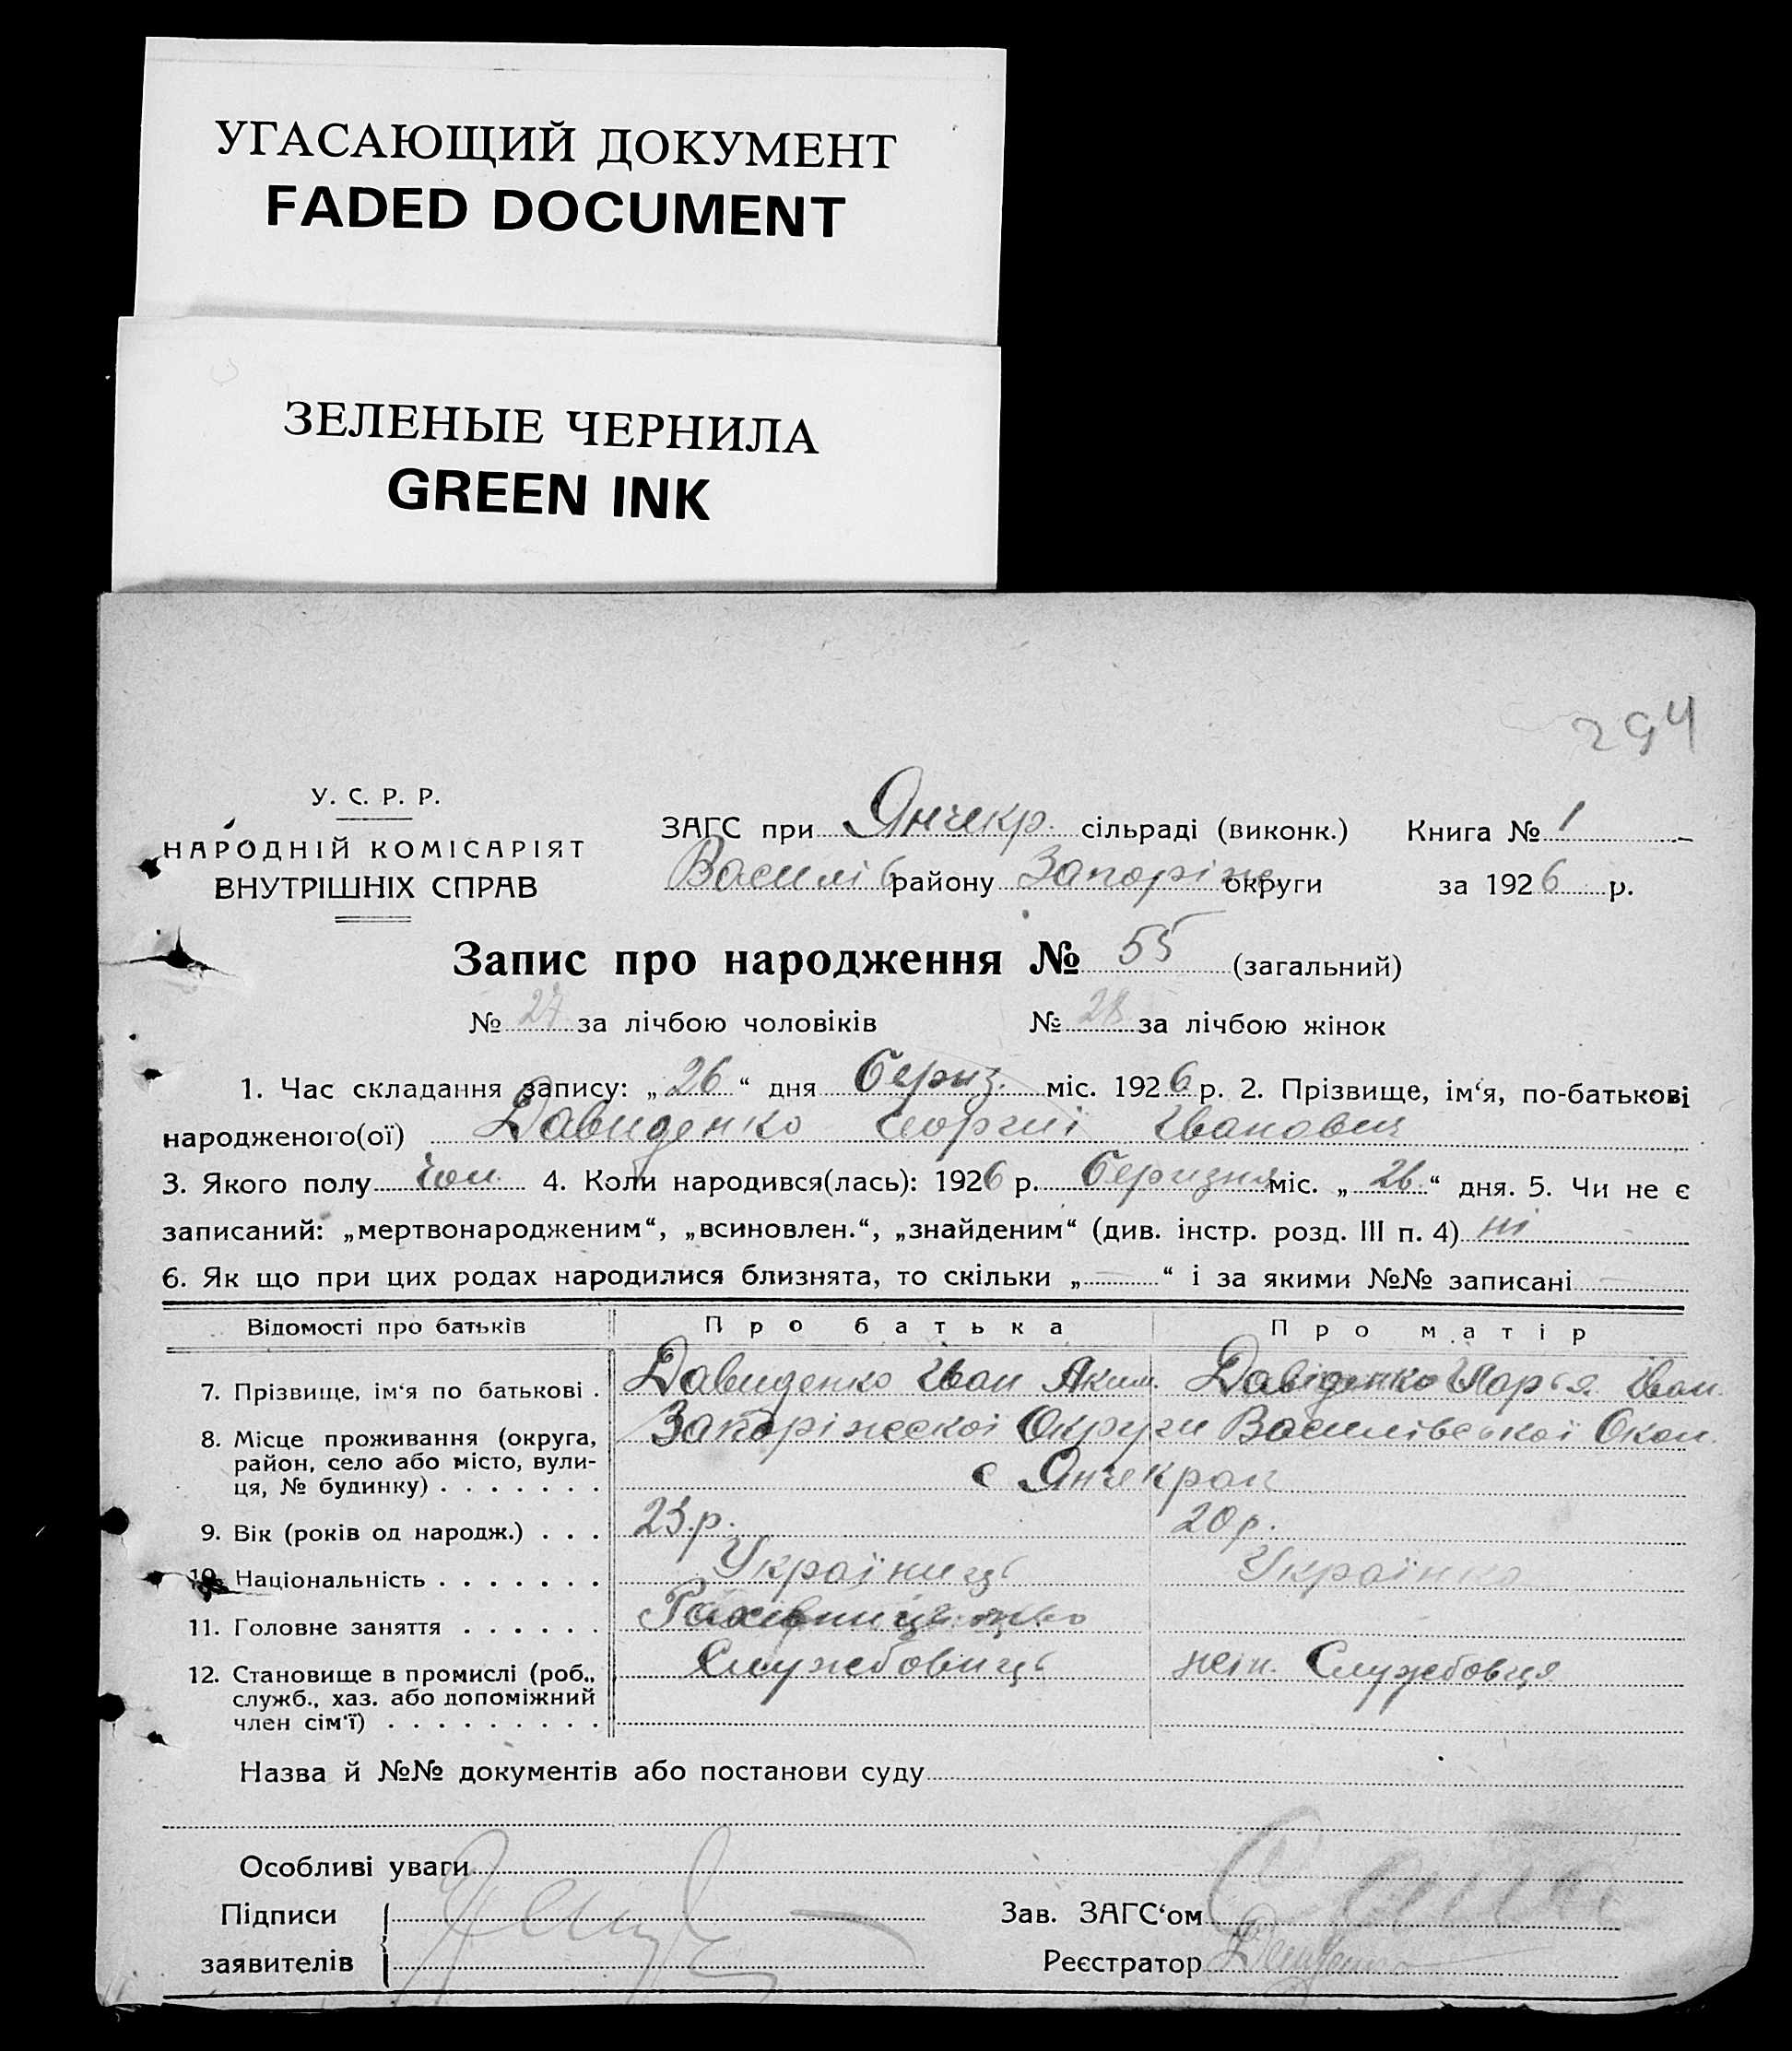 УГАСАЮЩИЙ ДОКУМЕНТ
FADED DOCUMENT
ЗЕЛЕНЫЕ ЧЕРНИЛА
GREEN INK
294
У. С. Р. Р.
НАРОДНІЙ КОМІСАРІЯТ
ВНУТРІШНІХ СПРАВ
ЗАГС при Янчекр. сільраді (виконк.) Книга № 1
Василів району Запоріж округи за 1926 р.
Запис про народження № 55 (загальний)
№ 27 за лічбою чоловіків № 28 за лічбою жінок
1. Час складання запису: „26“ дня бериз. міс. 1926 р. 2. Прізвище, ім‘я, по-батькові
народженого(ої) Давиденко Георгій Іванович
3. Якого полу чол. 4. Коли народився(лась): 1926 р. беризня міс. „26“ дня. 5. Чи не є
записаний: „мертвонародженим“, „всиновлен.“, „знайденим“ (див. інстр. розд. III п. 4) ні
6. Як що при цих родах народилися близнята, то скільки „—“ і за якими №№ записані —
Відомості про батьків Про батька Про матір
7. Прізвище, ім‘я по батькові . Давиденко Іван Яким. Давіденко Марья Іван.
8. Місце проживання (округа, район, село або місто, вулиця, № будинку) . . . . . . . Запоріжскої Округи Василівської Окол.
с Янчекрак
9. Вік (років од народж.) . . . 23.р. 20 р.
10. Національність . . . . . . . Українець Українка
11. Головне заняття . . . . . .
12. Становище в промислі (роб., служб., хаз. або допоміжний член сім‘ї) . . . . . . . . . Службовиць Службовця
Назва й №№ документів або постанови суду
Особливі уваги
Підписи
заявителів
Зав. ЗАГС‘ом
Реєстратор